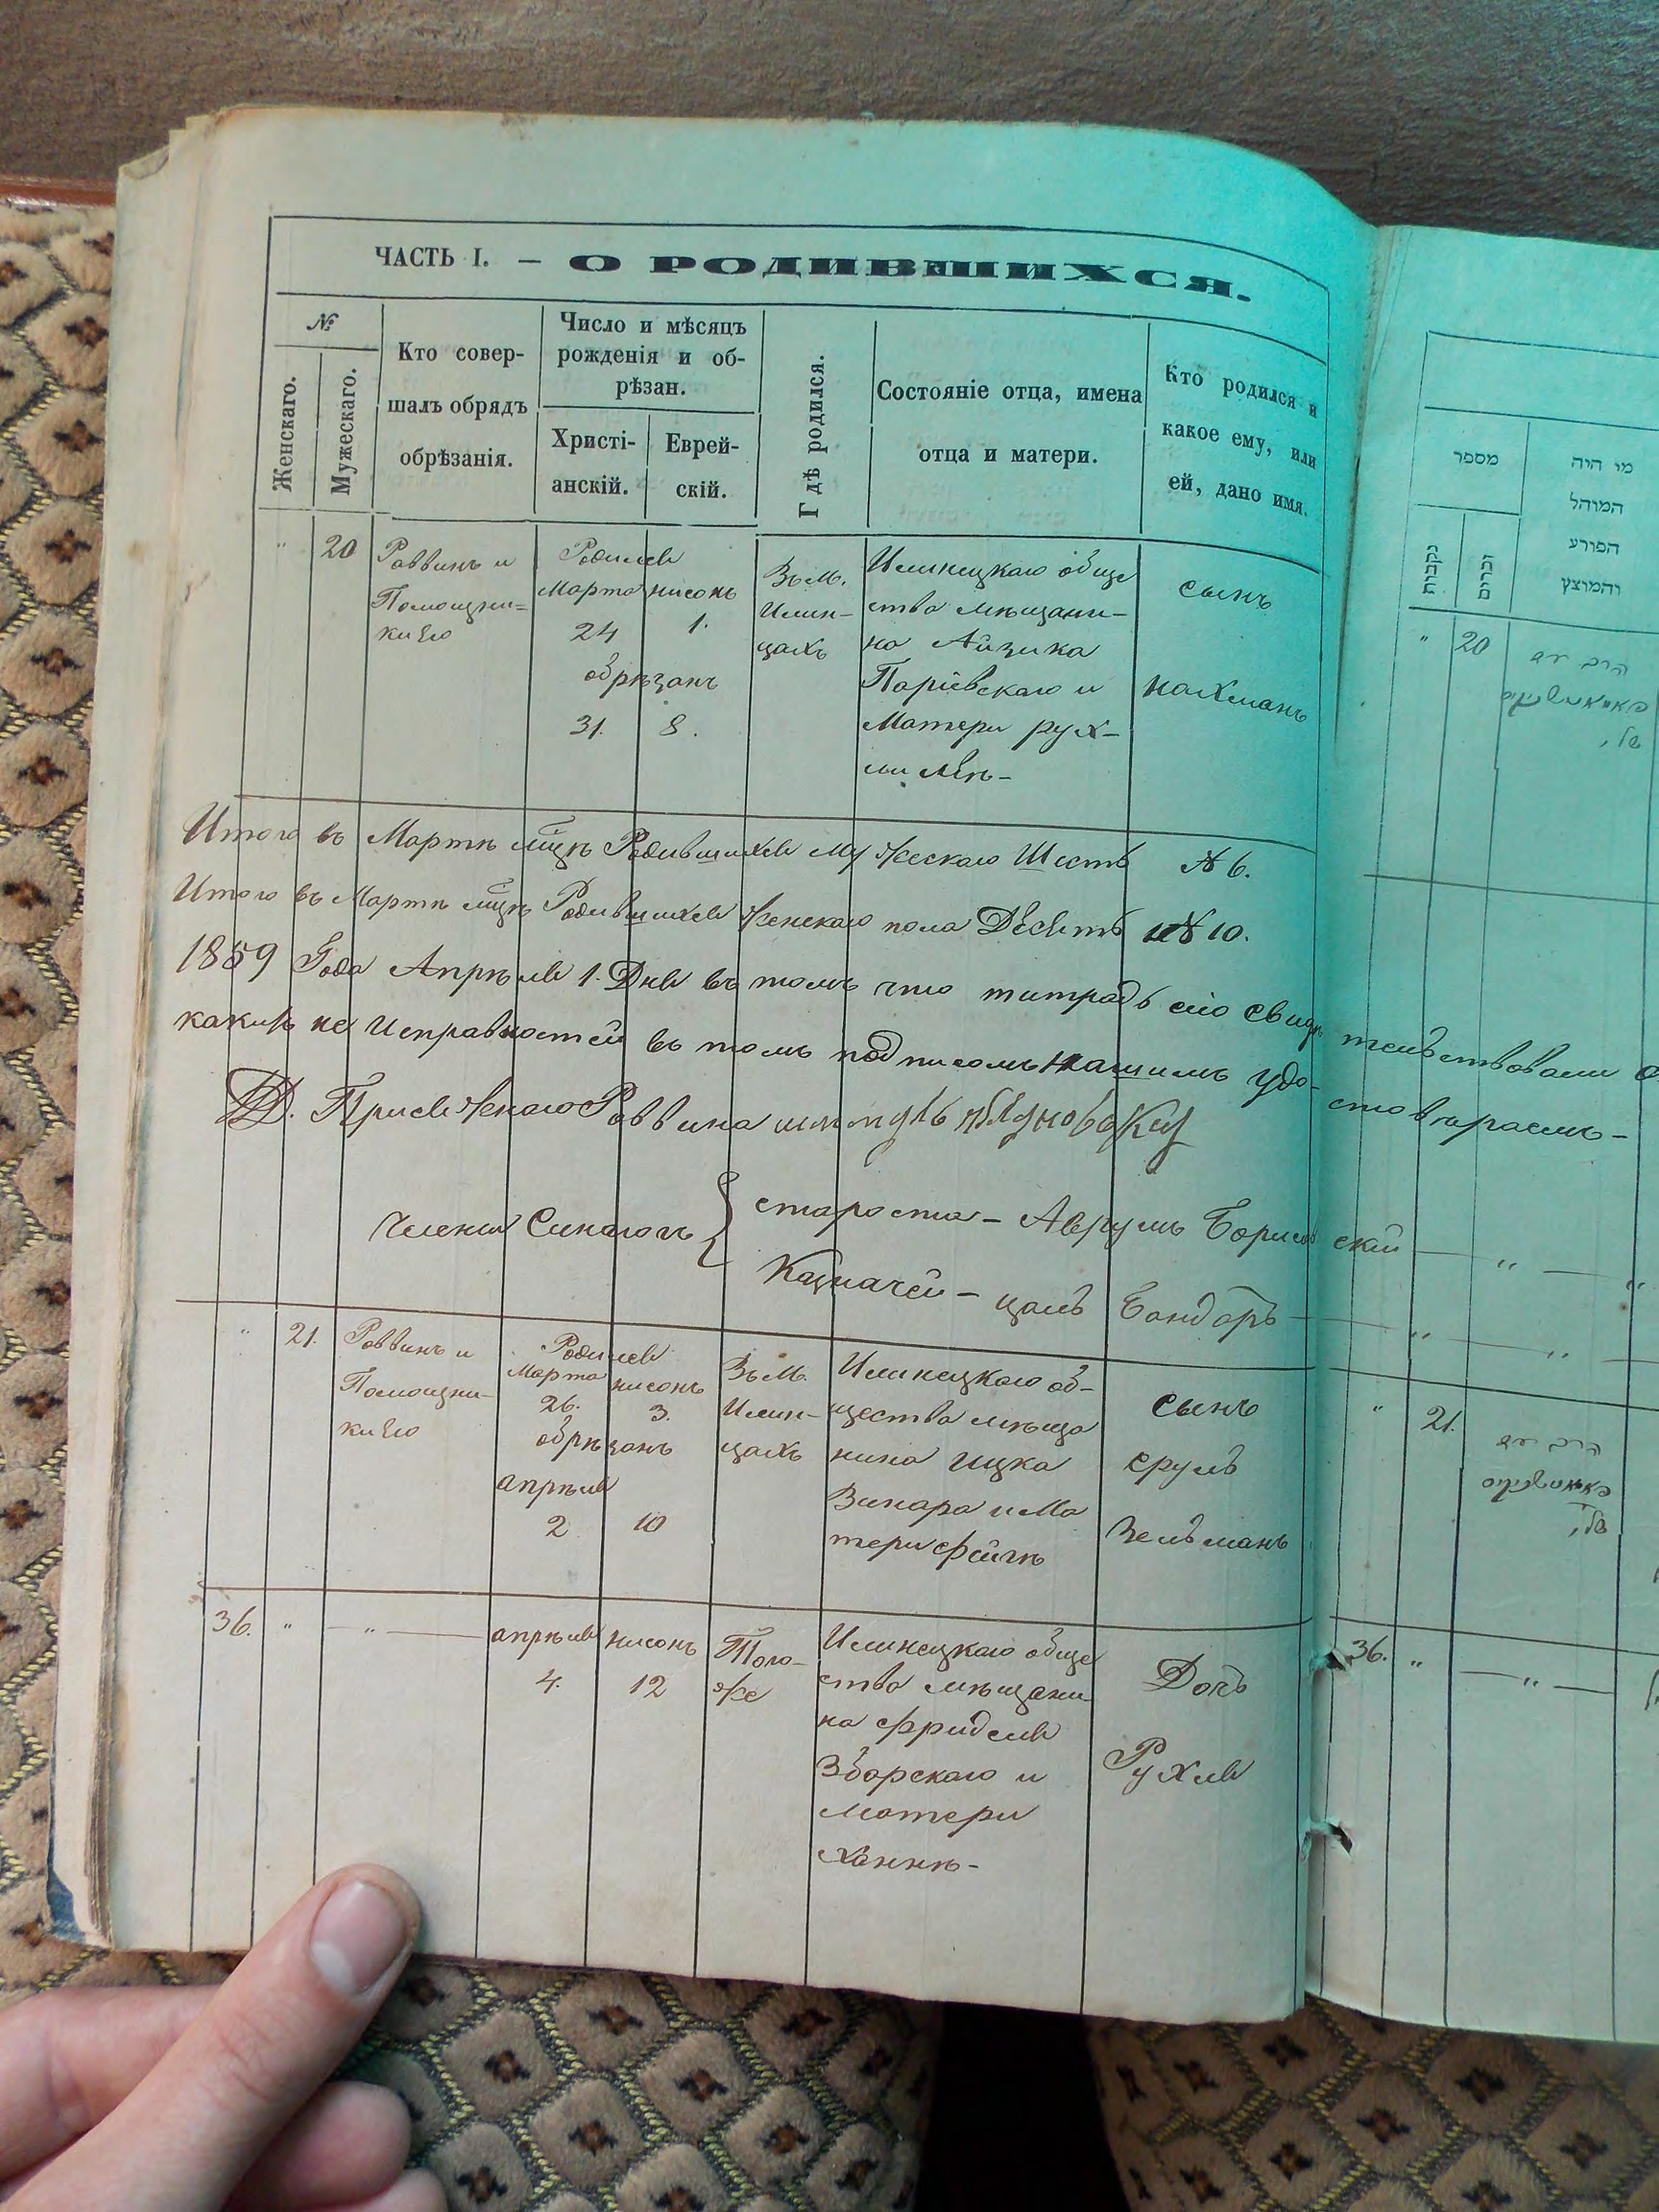 ЧАСТЬ I. — О РОДИВШИХСЯ.
№
Женскаго.
Мужескаго.
Кто совер-
шалъ обрядъ
обрѣзанія.
Число и мѣсяцъ
рожденія и об-
рѣзан.
Христі-
анскій.
Еврей-
скій.
Гдѣ родился.
Состояніе отца, имена
отца и матери.
Кто родился и
какое ему, или
ей, дано имя.
" 20
Раввинъ и
Помощни-
ки Его
Родился
Марта 24
нисонъ 1.
обрѣзанъ
31. 8.
Въ м.
Илин-
цахъ
Илинецкаго обще
ства мѣщани-
на Айзика
Паріевскаго и
Матери рух-
ли
сынъ
нахманъ
Итого въ Мартѣ мцѣ Родившихся мужескаго Шесть № 6.
Итого въ Мартѣ мцѣ Родившихся женскаго пола Десять № 10.
1859 Года Апрѣля 1. Дня въ томъ что титрадь сію свидѣтельствовали
какихъ не исправностей въ томъ подписомъ нашимъ удостовѣраемъ-
Присяжнаго Раввина
Члены Синагогъ
староста - Аврумъ Борисовскій — " — "
Казначей - цаль Бандаръ — " — " —
" 21.
Раввинъ и
Помощни-
ки Его
Родился
Марта 26.
нисонъ 3.
обрѣзанъ
апрѣля
2 10
Въ м.
Илин-
цахъ
Илинецкаго об-
щества мѣща
нина ицка
Винара и Ма
тери фейгѣ
сынъ
сруль
Зельманъ
36. " — " —
апрѣля 4.
нисонъ 12
Того-
же
Илинецкаго обще
ства мѣщани
на фриделя
Зборскаго и
матери
Ханнѣ-
Дочь
Рухля
מספר
נקבות
זכרים
מי היה
המוהל
הפורע
והמוצץ
" 20
" 21.
36. " — " —